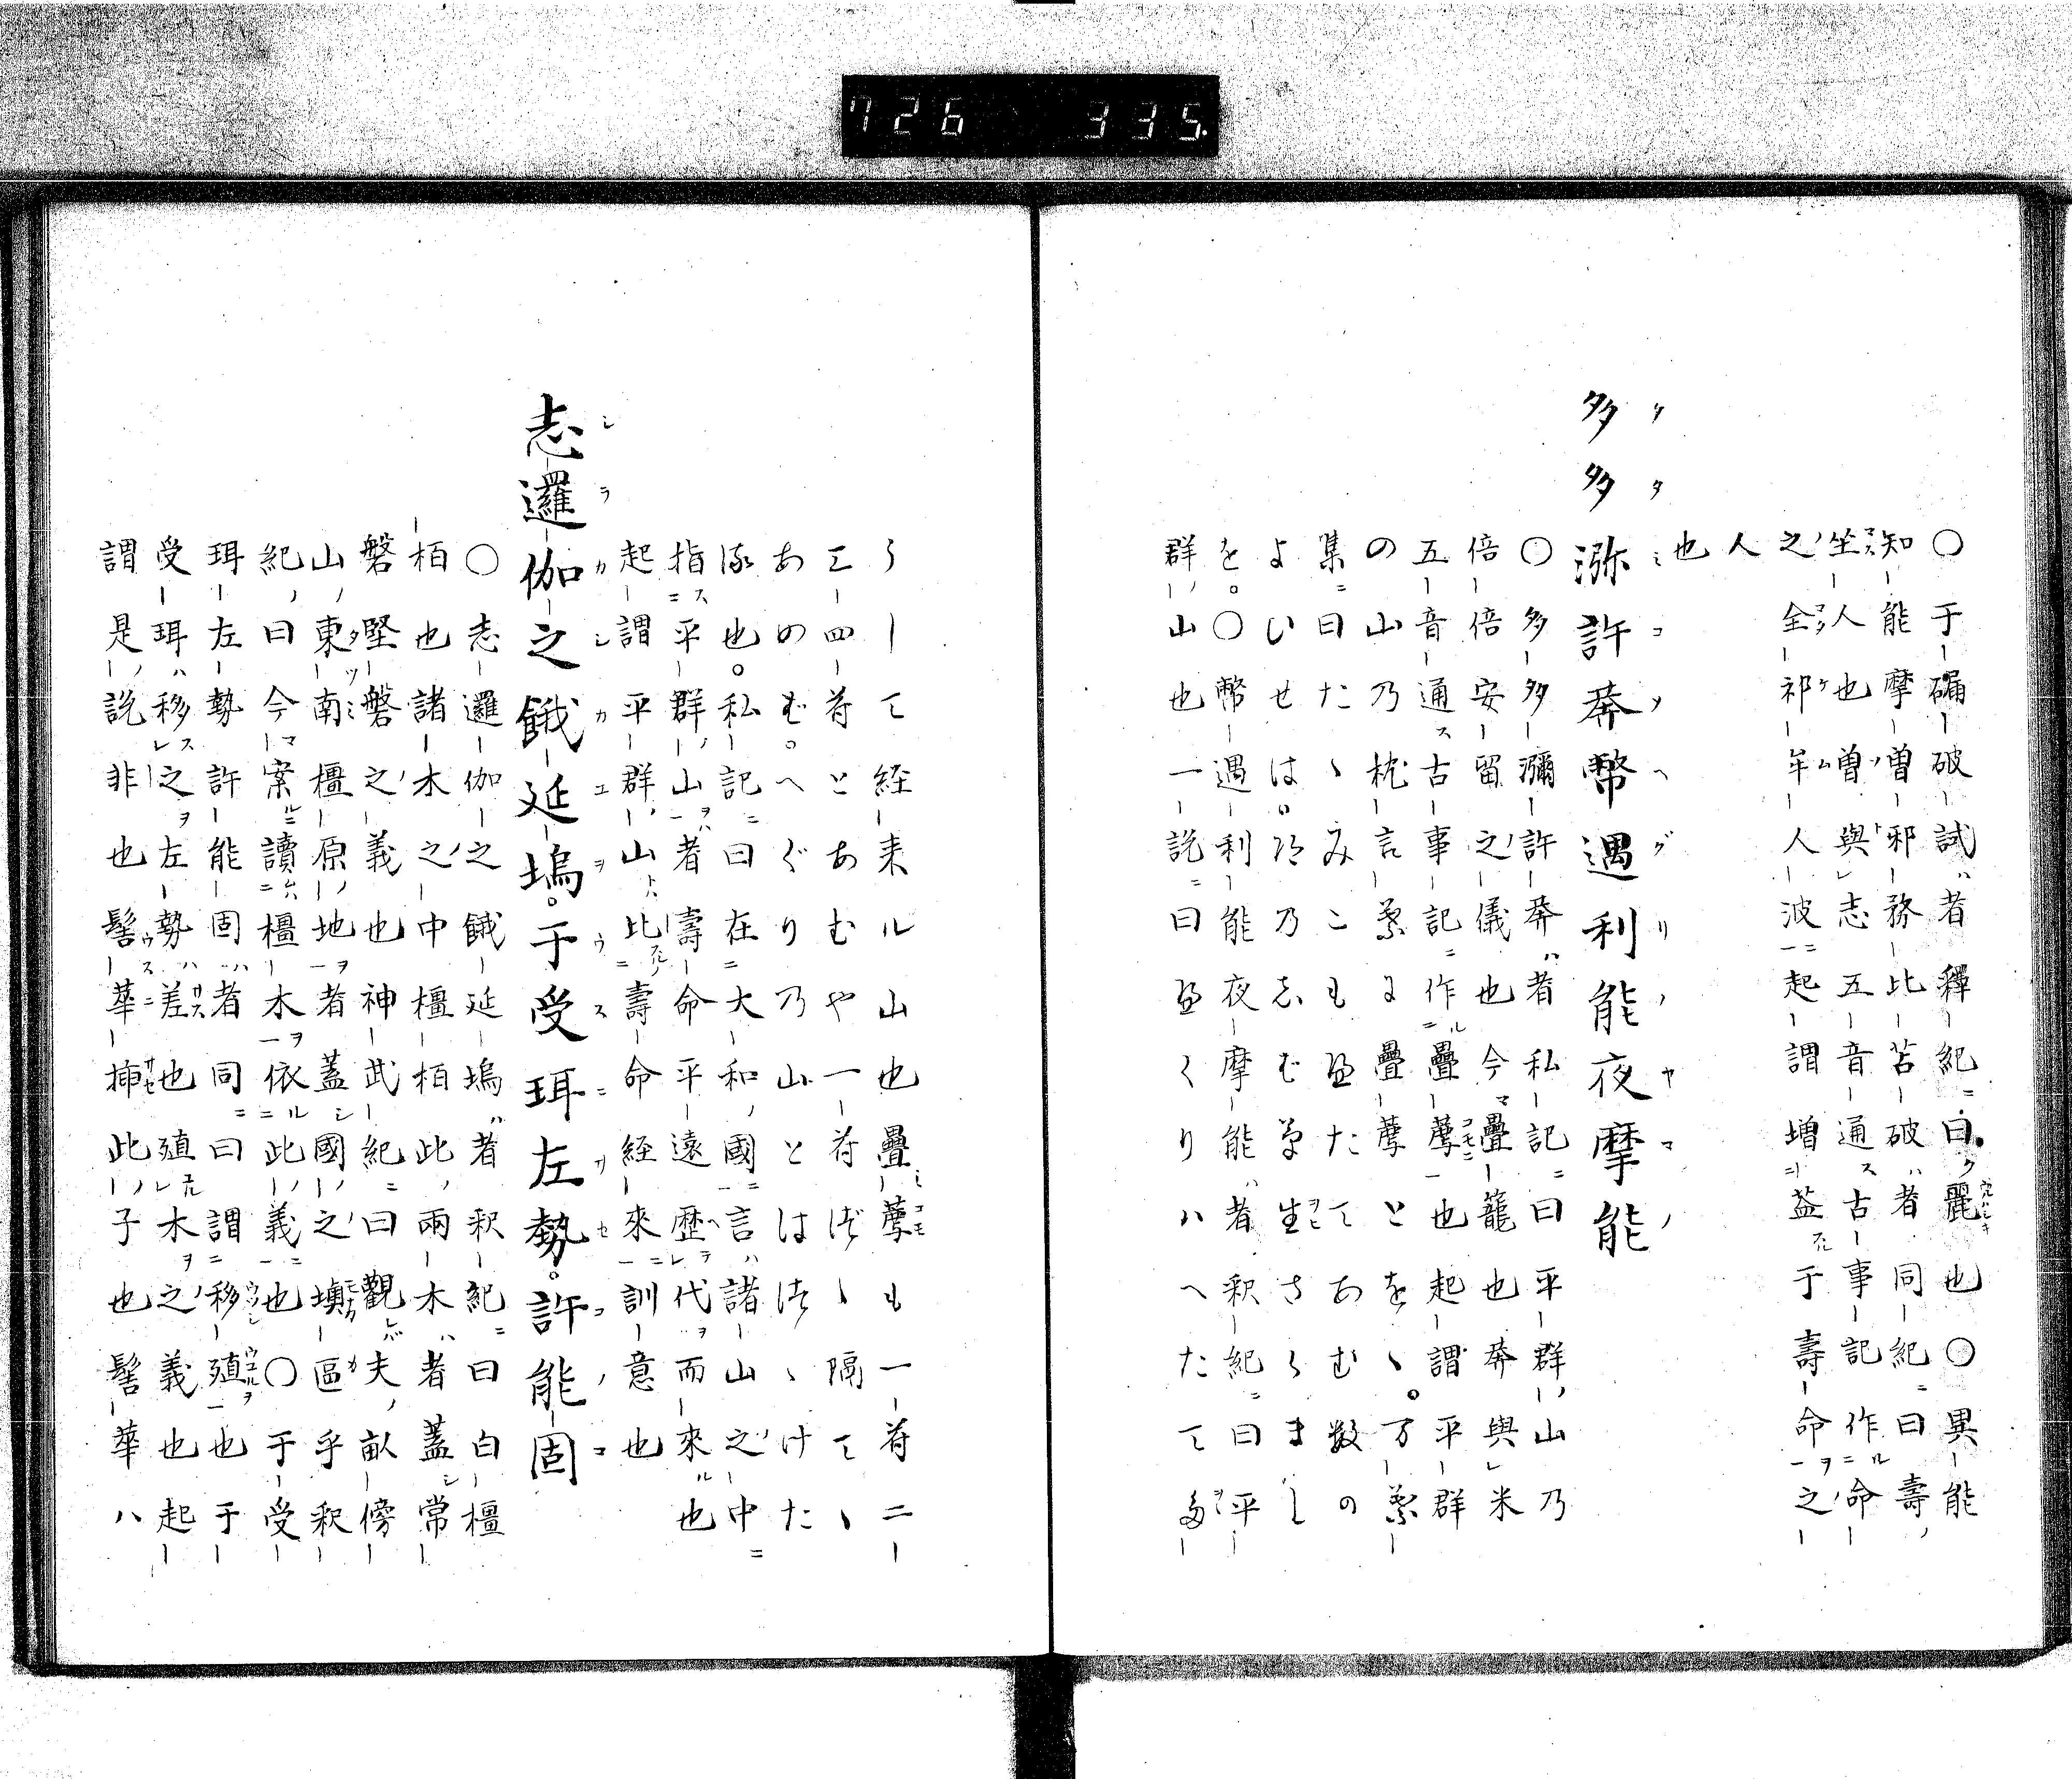 726 335.
〇于碥破試者釋紀曰麗也〇異能
知能摩曽邪務比苫破者同紀曰壽
坐人也曽與志五音通古事記作命
之全祁牟人波起謂増益于壽命之
人
也
多多瀰許莽幣遇利能夜摩能
〇多多瀰許莽者私記曰平群山乃
倍倍安留之儀也今疊籠也莽與米
五音通古事記作疊薦也起謂平群
の山乃枕言系に疊薦とを〻。万系
集曰たゝみこも
よいせは。乃志む草生さらまし
を。〇幣遇利能夜摩能者釈紀曰平
群山也一説曰
らして経来ル山也疊薦も一荷二
三四荷とあむや一荷〻隔て〻
あのむ。へぐり乃山とは〻けた
也。私記曰在大和國言諸山之中
指平群山者壽命平遠歴代而來也
起謂平群山比壽命経來訓意也
志邏伽之餓延塢。于受珥左勢。許能固
〇志邏伽之餓延塢者釈紀曰白橿
栢也諸木之中橿栢此兩木者蓋常
磐堅磐之義也神武紀曰觀夫畝傍
山東南橿原地者蓋國之墺區乎釈
紀曰今案讀橿木依此義也〇于受
珥左勢許能固者同曰謂移殖也于
受珥移之左勢差也殖木之義也起
謂是説非也髻華挿此子也髻華ハ